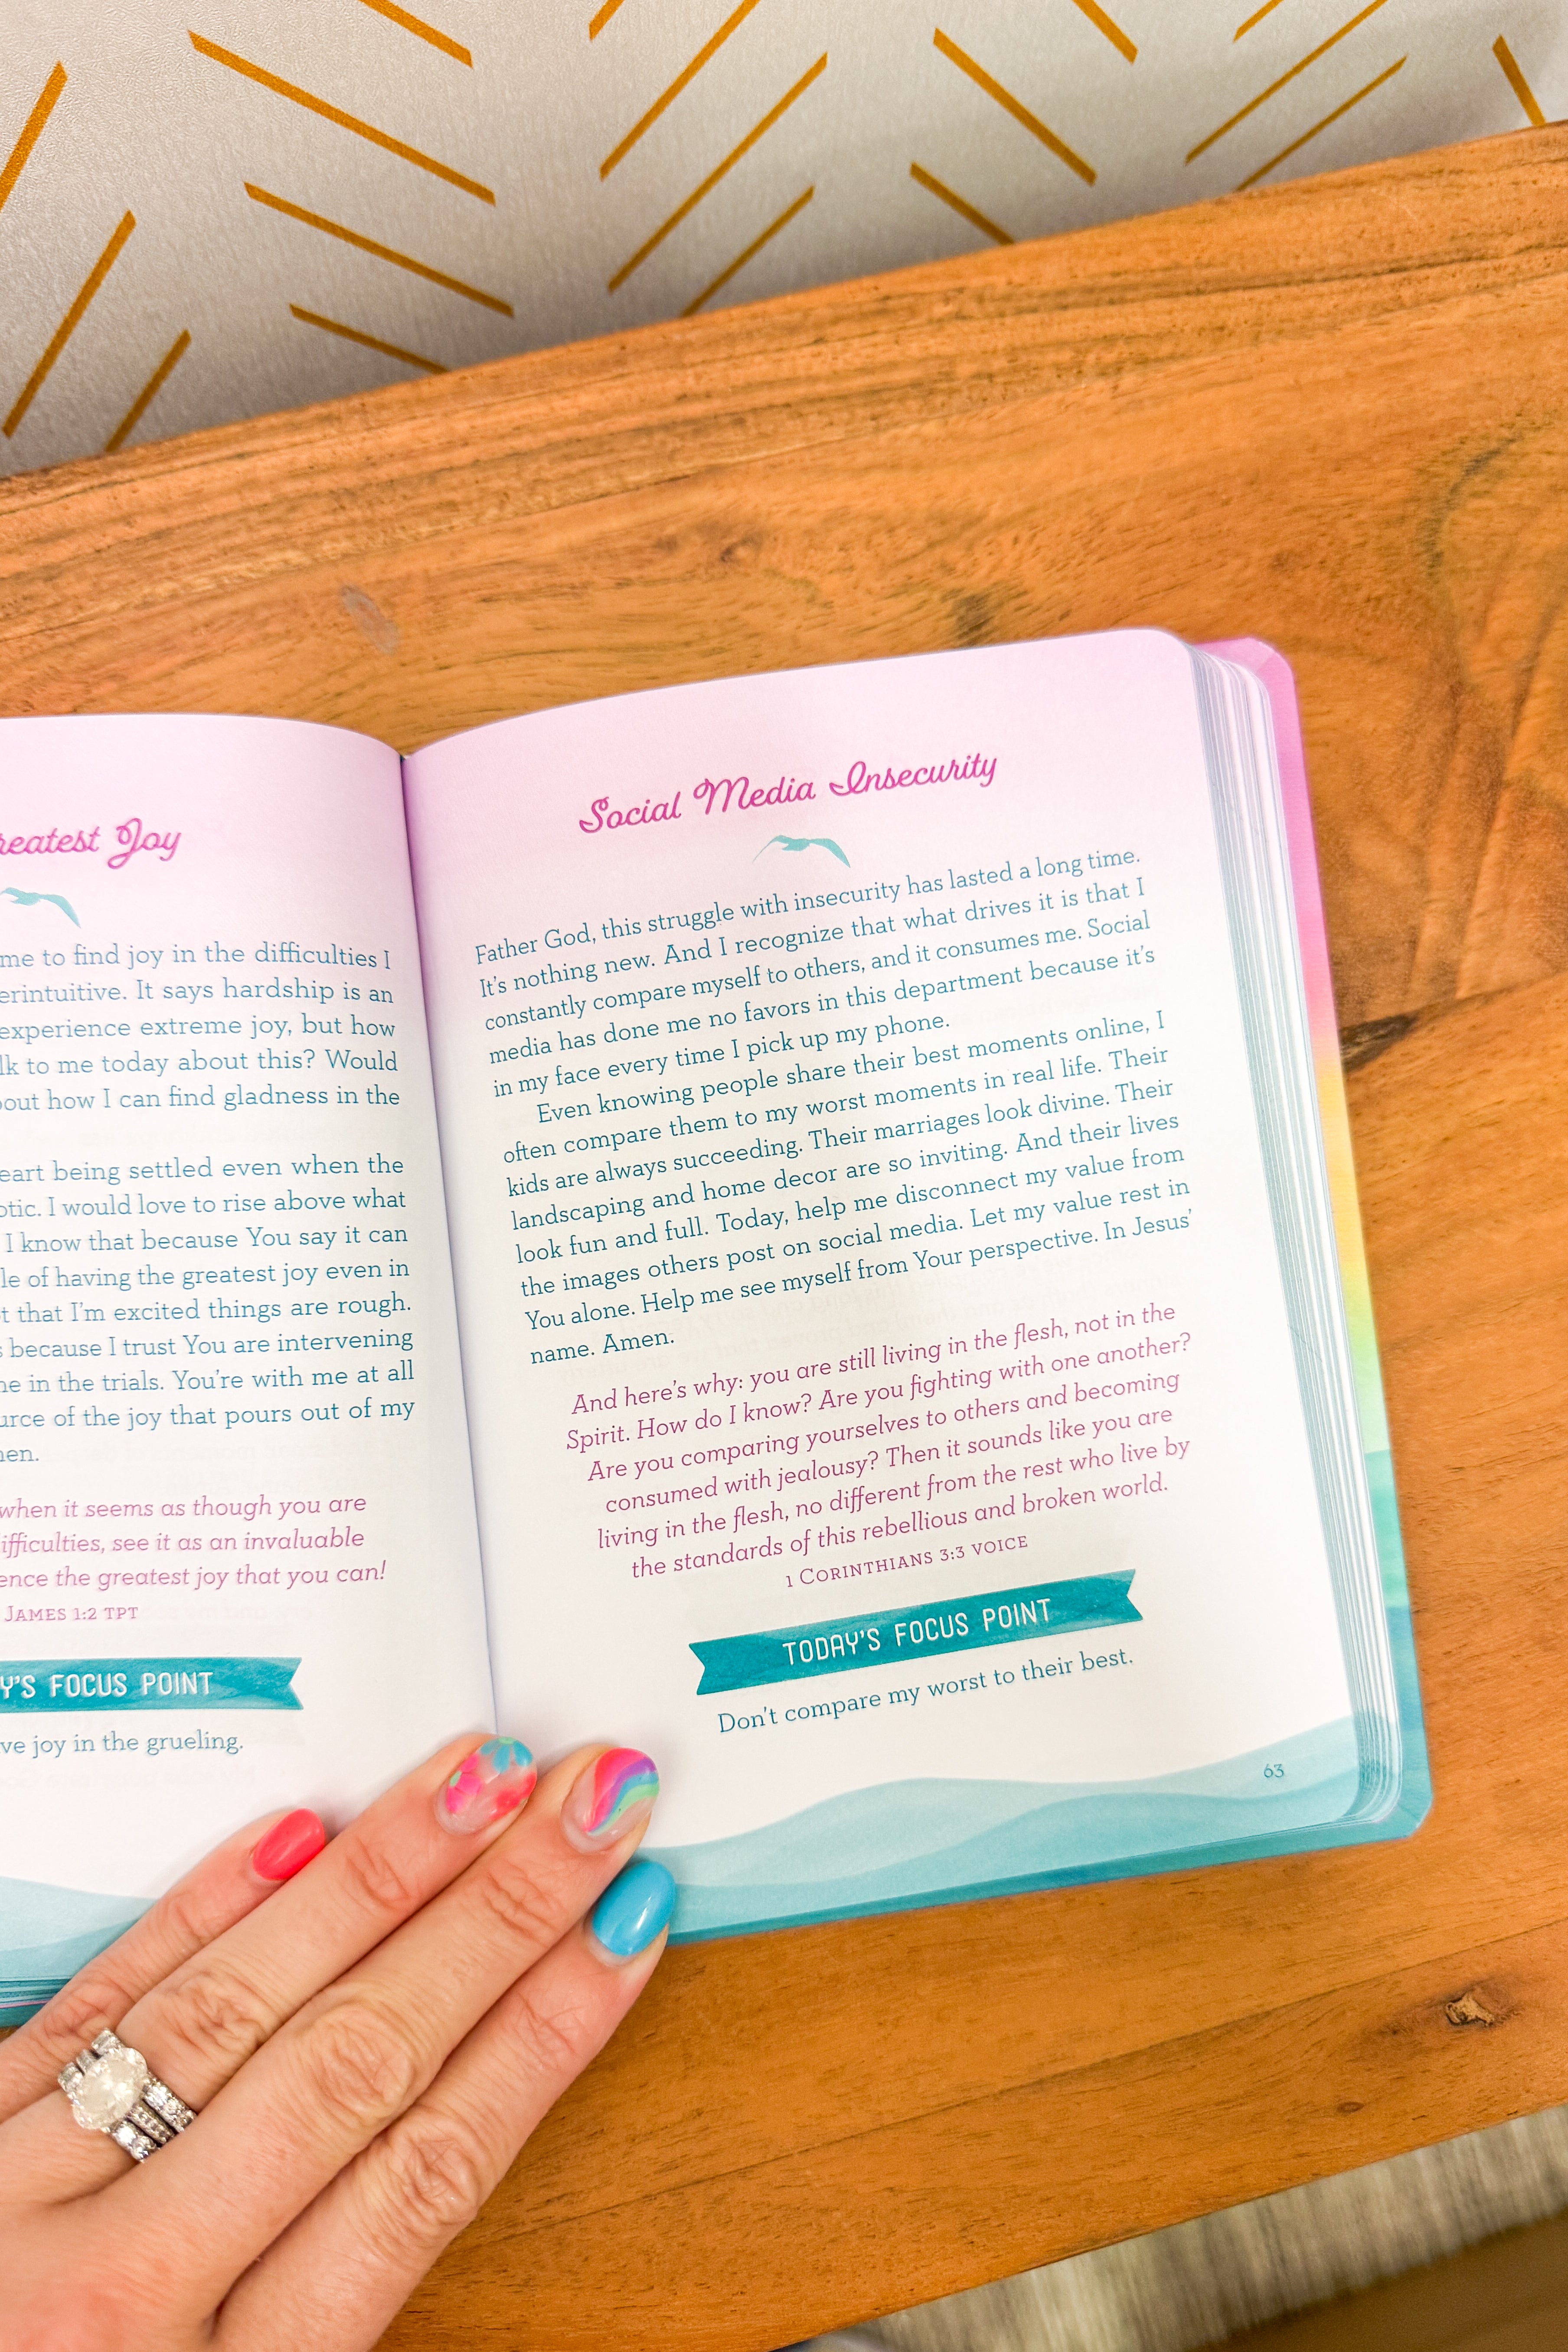 reatest Joy
me to find joy in the difficulties I
erintuitive. It says hardship is an
experience extreme joy, but how
lk to me today about this? Would
out how I can find gladness in the
eart being settled even when the
otic. I would love to rise above what
I know that because You say it can
le of having the greatest joy even in
t that I'm excited things are rough.
s because I trust You are intervening
ne in the trials. You're with me at all
urce of the joy that pours out of my
nen.
when it seems as though you are
ifficulties, see it as an invaluable
ence the greatest joy that you can!
James 1:2 TPT
Y'S FOCUS POINT
ve joy in the grueling.
Social Media Insecurity
Father God, this struggle with insecurity has lasted a long time.
It's nothing new. And I recognize that what drives it is that I
constantly compare myself to others, and it consumes me. Social
media has done me no favors in this department because it's
in my face every time I pick up my phone.
Even knowing people share their best moments online, I
often compare them to my worst moments in real life. Their
kids are always succeeding. Their marriages look divine. Their
landscaping and home decor are so inviting. And their lives
look fun and full. Today, help me disconnect my value from
the images others post on social media. Let my value rest in
You alone. Help me see myself from Your perspective. In Jesus'
name. Amen.
And here's why: you are still living in the flesh, not in the
Spirit. How do I know? Are you fighting with one another?
Are you comparing yourselves to others and becoming
consumed with jealousy? Then it sounds like you are
living in the flesh, no different from the rest who live by
the standards of this rebellious and broken world.
1 Corinthians 3:3 VOICE
TODAY'S FOCUS POINT
Don't compare my worst to their best.
63